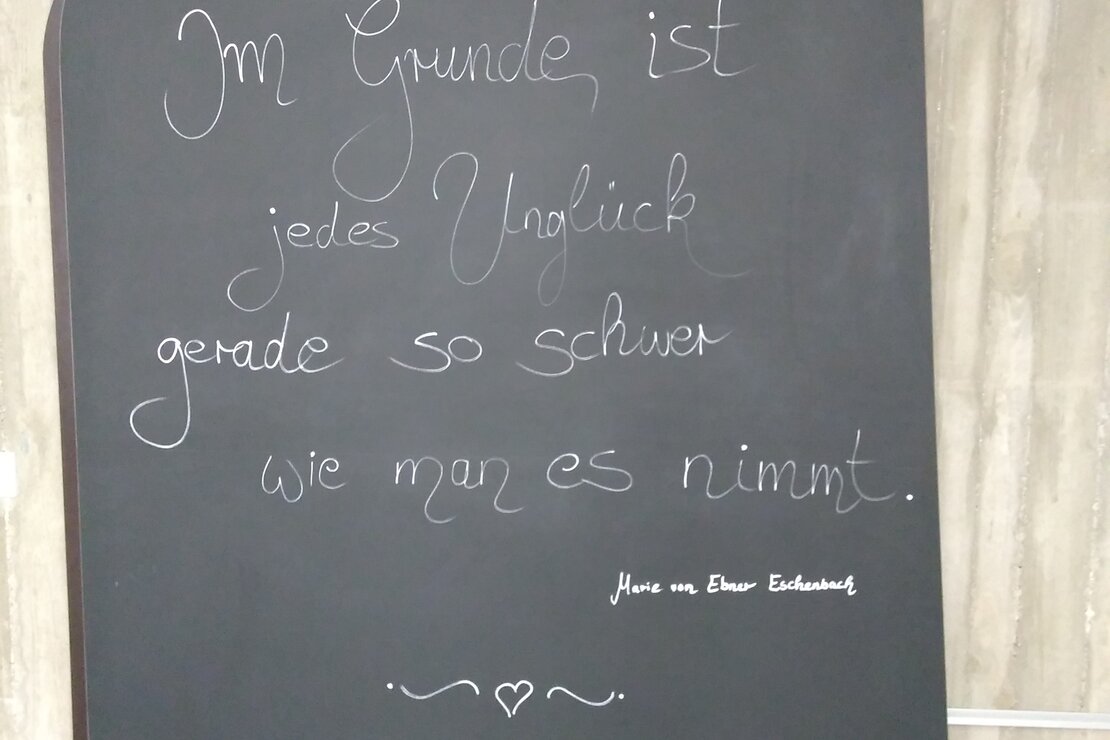 Im Grunde ist
jedes Unglück
gerade so schwer
wie man es nimmt.
Marie von Ebner Eschenbach